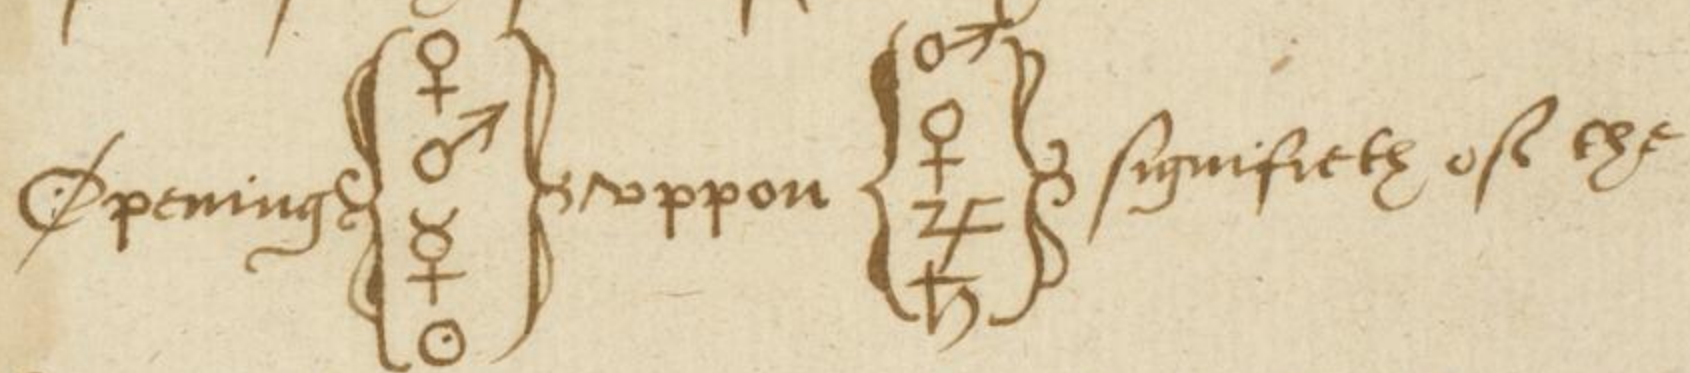 Opening { ♀ ♂ ☿ ☉ } vppon { ♂ ♀ ♃ ♄ } signifieth ost the